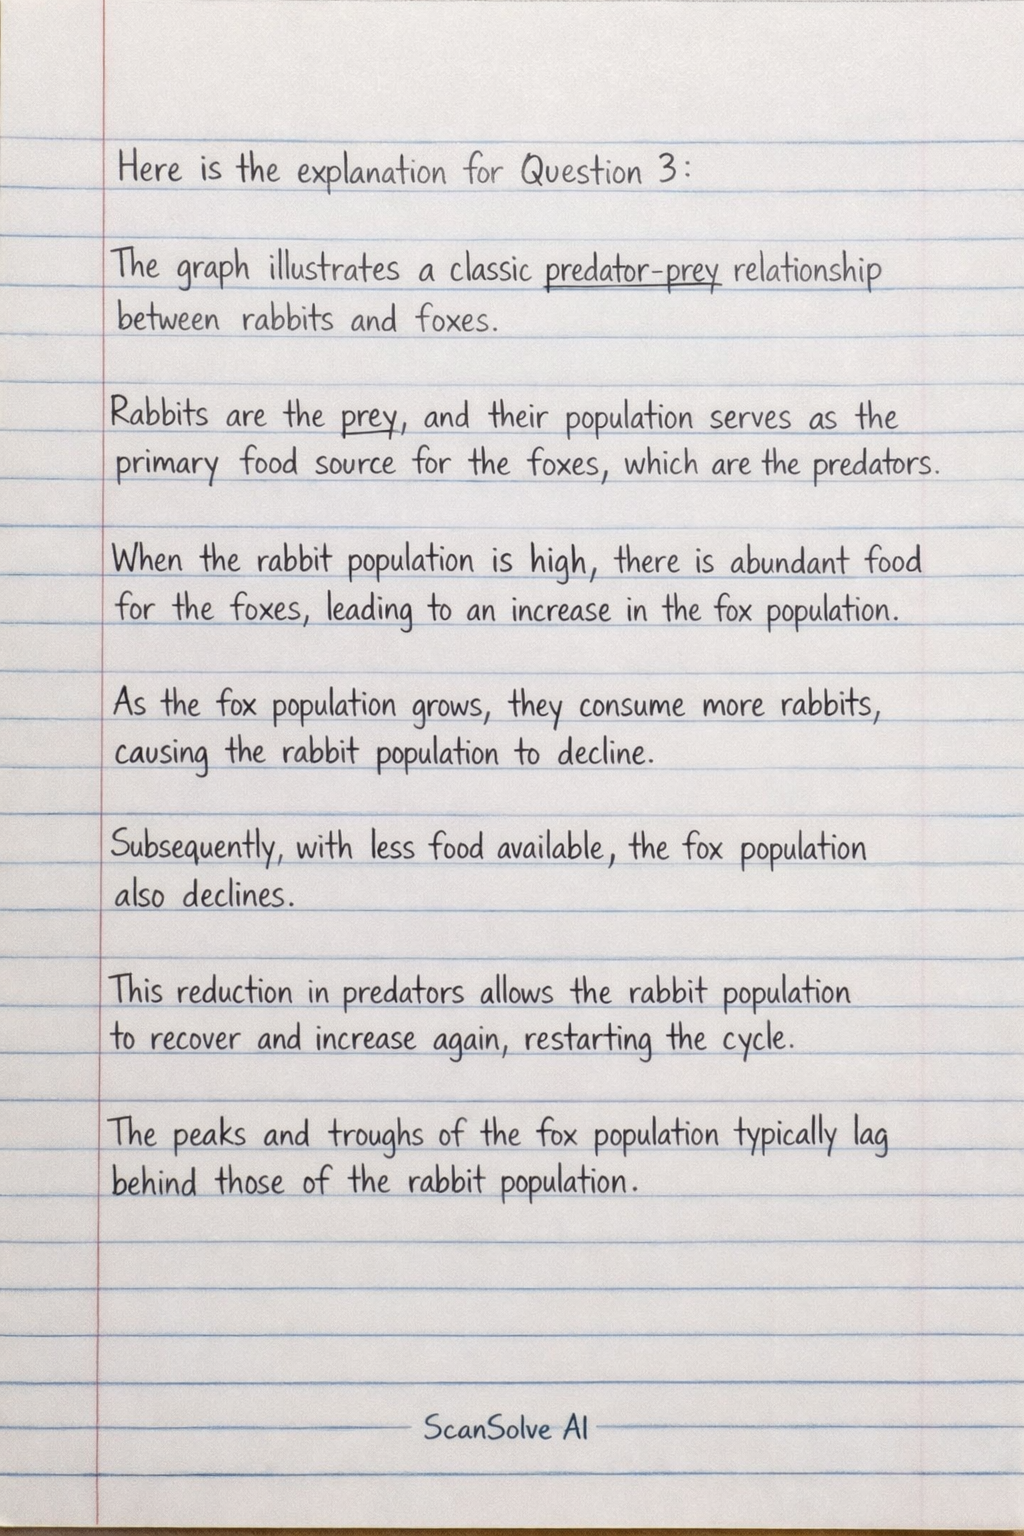 Here is the explanation for Question 3:
The graph illustrates a classic predator-prey relationship
between rabbits and foxes.
Rabbits are the prey, and their population serves as the
primary food source for the foxes, which are the predators.
When the rabbit population is high, there is abundant food
for the foxes, leading to an increase in the fox population.
As the fox population grows, they consume more rabbits,
causing the rabbit population to decline.
Subsequently, with less food available, the fox population
also declines.
This reduction in predators allows the rabbit population
to recover and increase again, restarting the cycle.
The peaks and troughs of the fox population typically lag
behind those of the rabbit population.
ScanSolve AI